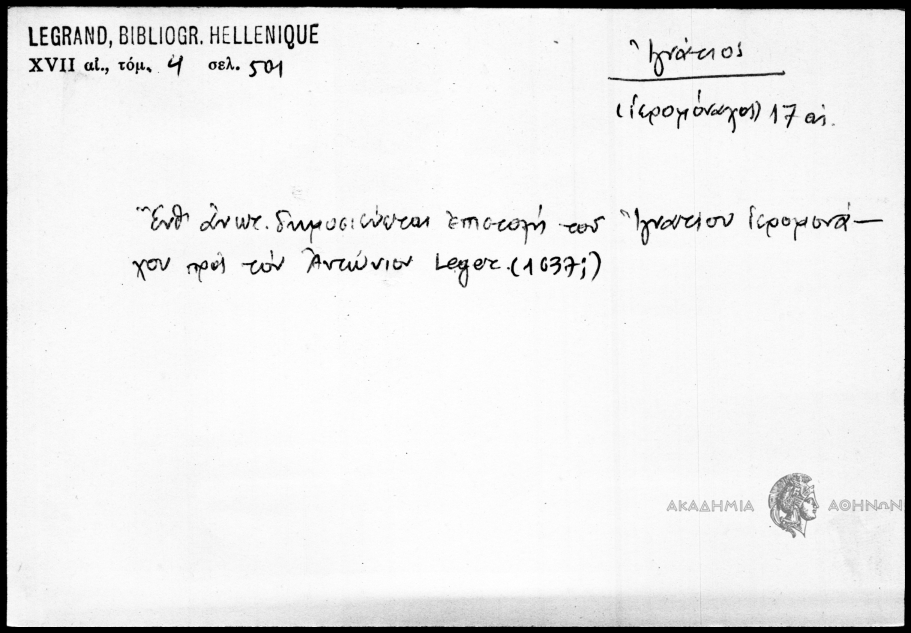 LEGRAND, BIBLIOGR. HELLENIQUE
XVII αἰ., τόμ. 4 σελ. 501
Ἰγνάτιος
(ἱερομόναχος) 17 αἰ.
Ἔνθ' ἀνωτ. δημοσιεύεται ἐπιστολὴ τοῦ Ἰγνατίου ἱερομονά-
χου πρὸς τὸν Ἀντώνιον Leger. (1637;)
ΑΚΑΔΗΜΙΑ ΑΘΗΝΩΝ